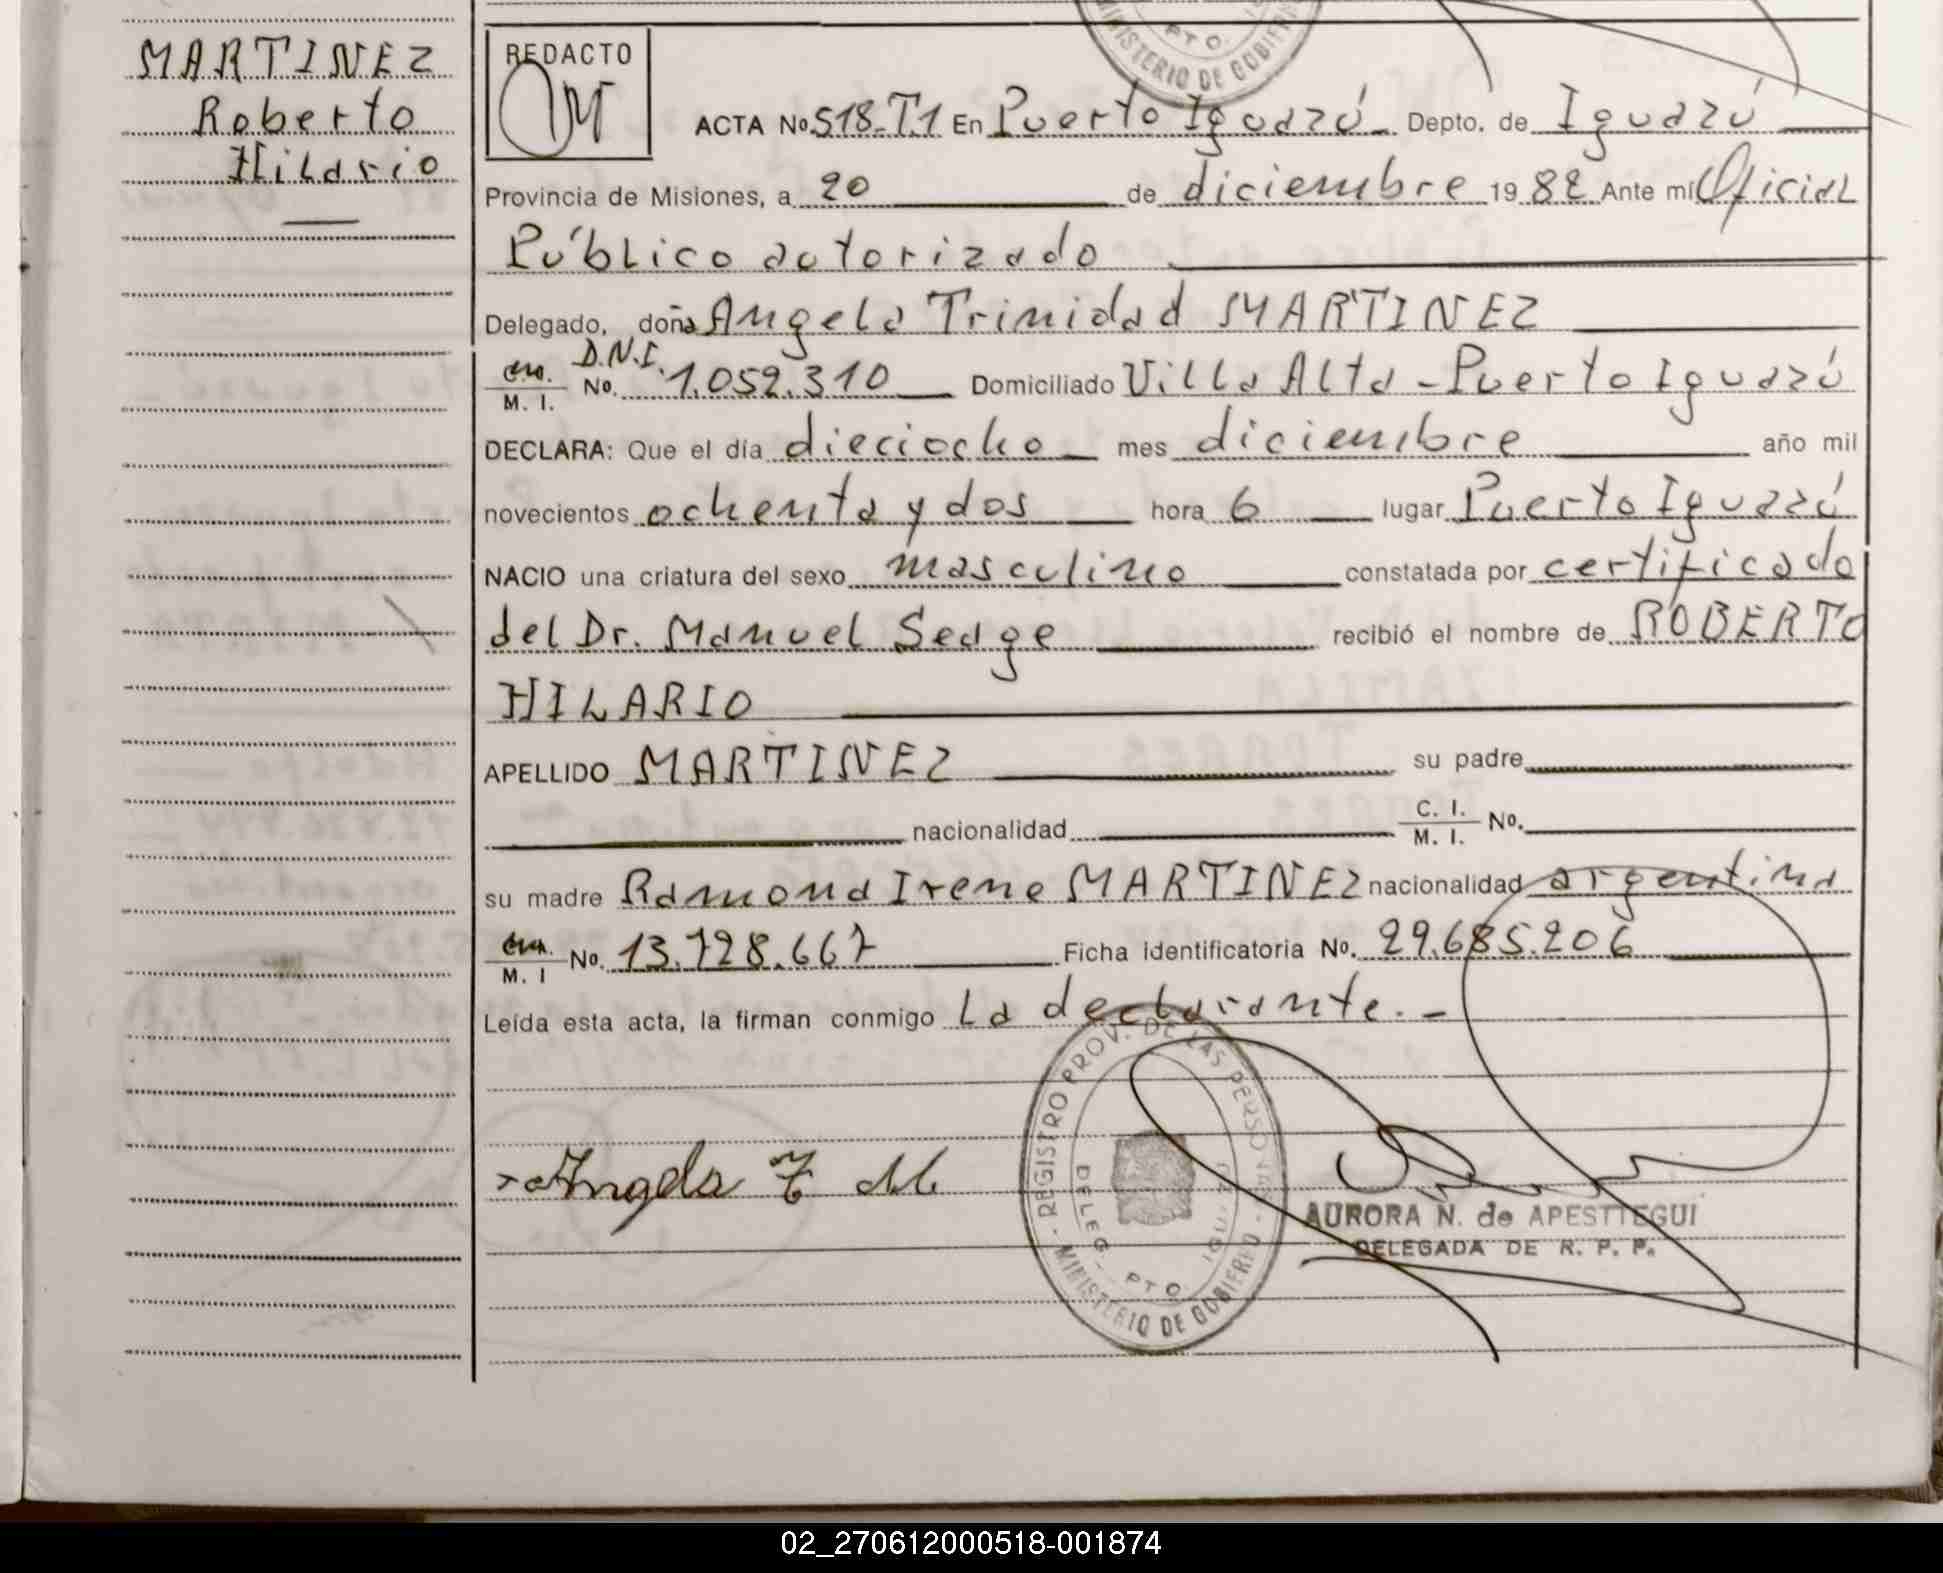 MARTINEZ
Roberto
Hilario
REDACTO
ACTA No. 518-T.1 En Puerto Iguazú Depto. de Iguazú
Provincia de Misiones, a 20 de diciembre 1982 Ante mí Oficial
Público autorizado
Delegado, doña Angela Trinidad MARTINEZ
D.N.I.
M. I. No. 1.052.310 Domiciliado Villa Alta - Puerto Iguazú
DECLARA: Que el día dieciocho mes diciembre año mil
novecientos ochenta y dos hora 6 lugar Puerto Iguazú
NACIO una criatura del sexo masculino constatada por certificado
del Dr. Manuel Seage recibió el nombre de ROBERTO
HILARIO
APELLIDO MARTINEZ su padre
nacionalidad C. I. M. I. No.
su madre Ramona Irene MARTINEZ nacionalidad argentina
M. I No. 13.728.667 Ficha identificatoria No. 29.685.206
Leída esta acta, la firman conmigo la declarante. -
Angela T M
REGISTRO PROV. DE LAS PERSONAS
DELEG. PTO. IGUAZU
MINISTERIO DE GOBIERNO
AURORA N. de APESTTEGUI
DELEGADA DE R. P. P.
PTO.
MINISTERIO DE GOBIERNO
02_270612000518-001874